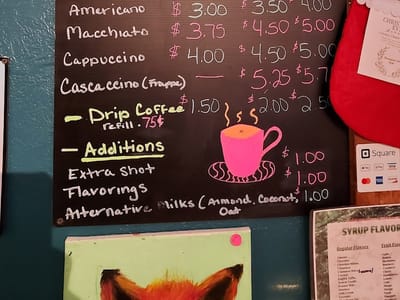 Americano $3.00 $3.50 $4.00
Macchiato $3.75 $4.50 $5.00
Cappuccino $4.00 $4.50 $5.00
Cascaccino (Frappe) — $5.25 $5.7
- Drip Coffee $1.50 $2.00 $2.5
refill .75¢
- Additions
Extra Shot $1.00
Flavorings $1.00
Alternative Milks (Almond, Coconut, $1.00
Oat
Square
SYRUP FLAVOR
Regular Flavors